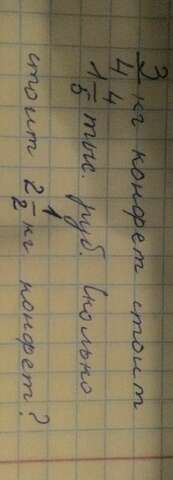 3/4 кг конфет стоит
1 4/5 тыс. руб. Сколько
стоит 2 1/2 кг конфет?